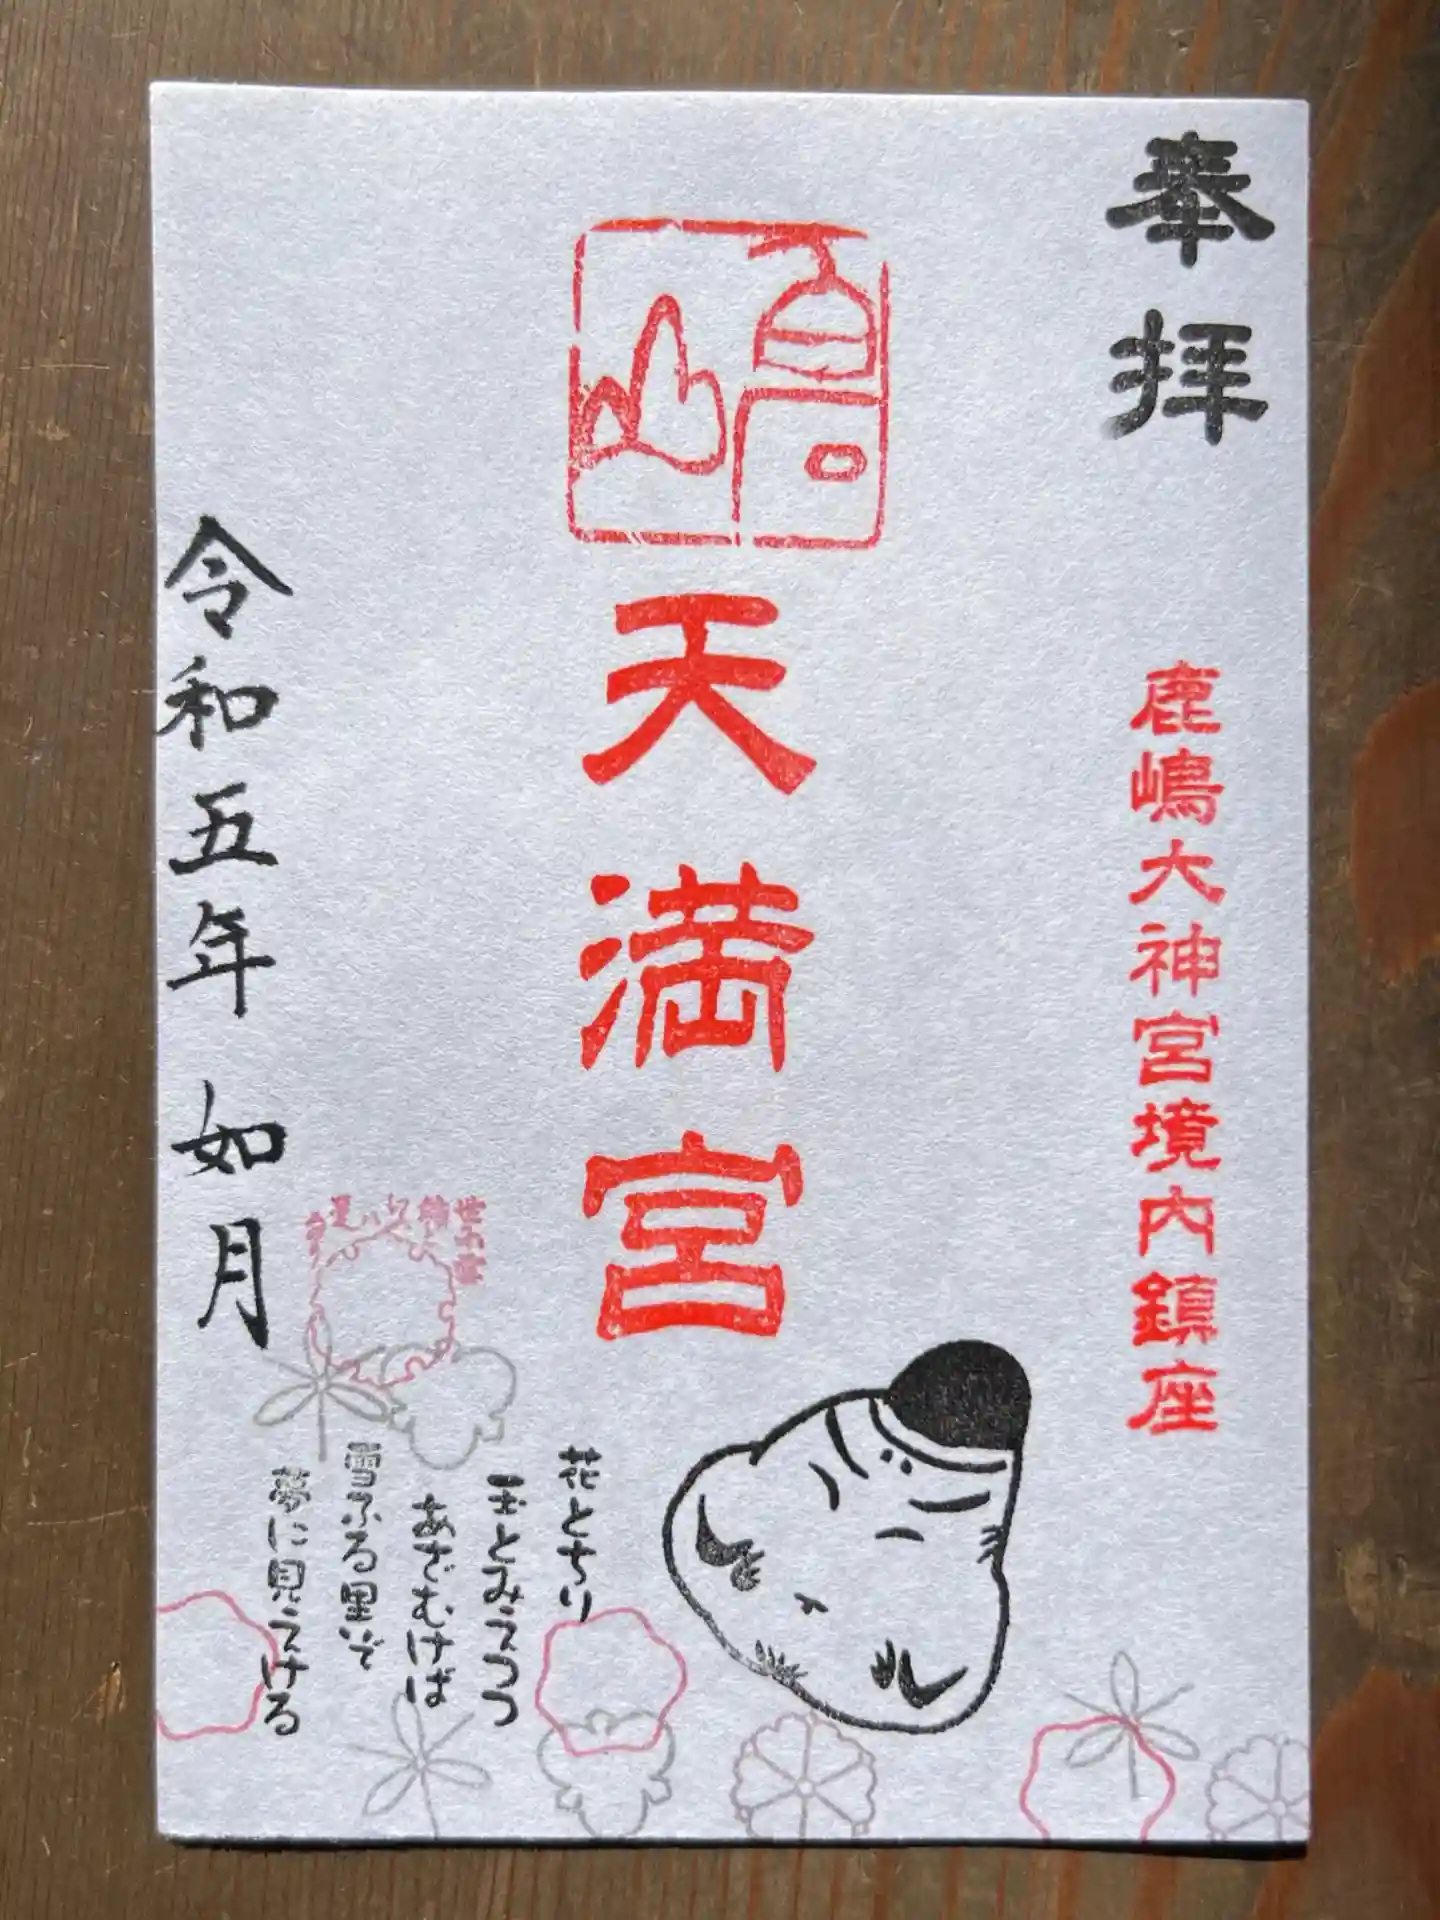 奉拝
鹿嶋大神宮境内鎮座
天満宮
花とちり
玉とみえつつ
あざむけば
雪ふる里ぞ
夢に見えける
令和五年 如月